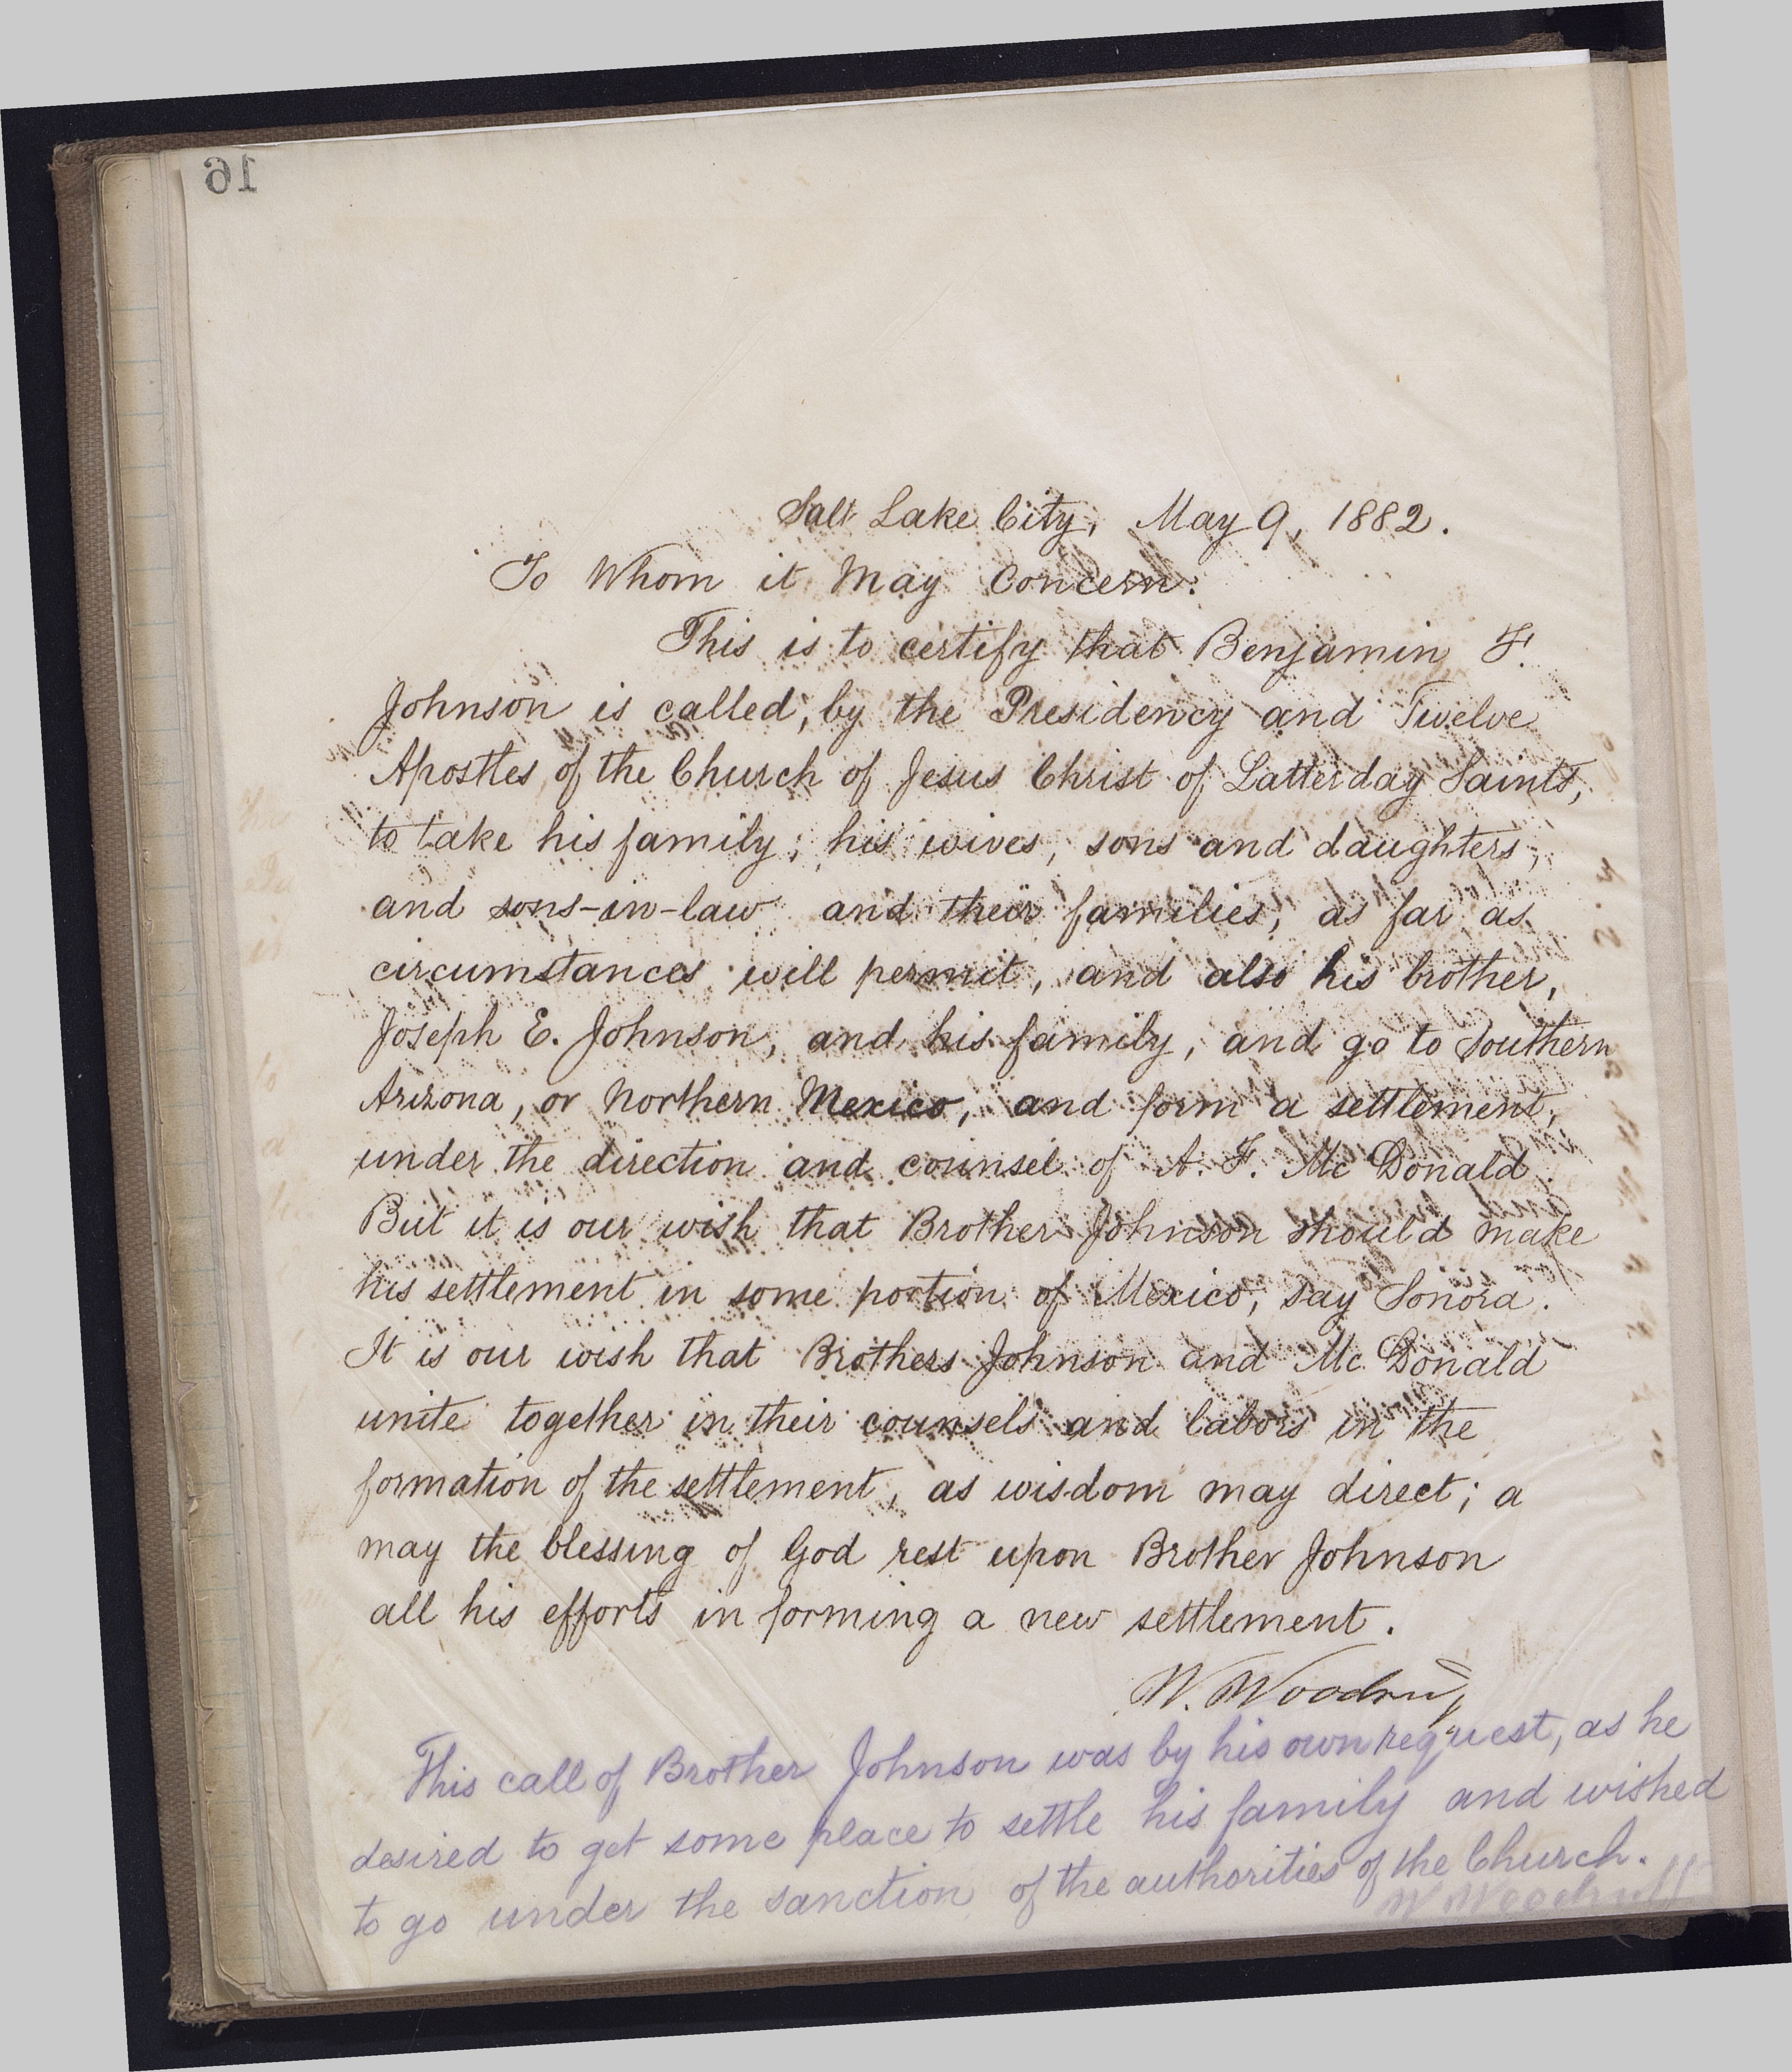 16
Salt Lake City, May 9, 1882.
To Whom it May Concern:
This is to certify that Benjamin F.
Johnson is called, by the Presidency and Twelve
Apostles of the Church of Jesus Christ of Latter day Saints,
to take his family; his wives, sons and daughters,
and sons-in-law and their families, as far as
circumstances will permit, and also his brother,
Joseph E. Johnson, and his family, and go to Southern
Arizona, or Northern Mexico, and form a settlement,
under the direction and counsel of A. F. Mc Donald.
But it is our wish that Brother Johnson should make
his settlement in some portion of Mexico, say Sonora.
It is our wish that Brothers Johnson and Mc Donald
unite together in their counsels and labors in the
formation of the settlement, as wisdom may direct; a
may the blessing of God rest upon Brother Johnson
all his efforts in forming a new settlement.
W. Woodruff
This call of Brother Johnson was by his own request, as he
desired to get some place to settle his family and wished
to go under the sanction of the authorities of the Church.
W Woodruff